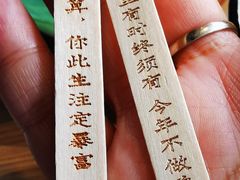 算，你此生注定暴富
里有时终须有 今年不做